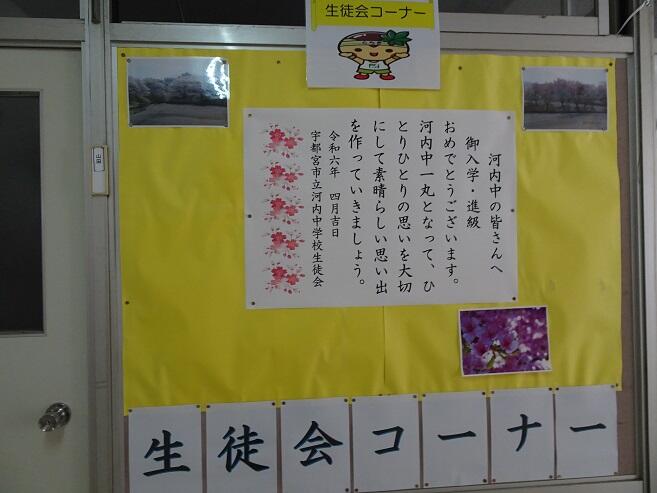 生徒会コーナー
河内中の皆さんへ
御入学・進級
おめでとうございます。
河内中一丸となって、ひ
とりひとりの思いを大切
にして素晴らしい思い出
を作っていきましょう。
令和六年 四月吉日
宇都宮市立河内中学校生徒会
生徒会コーナー